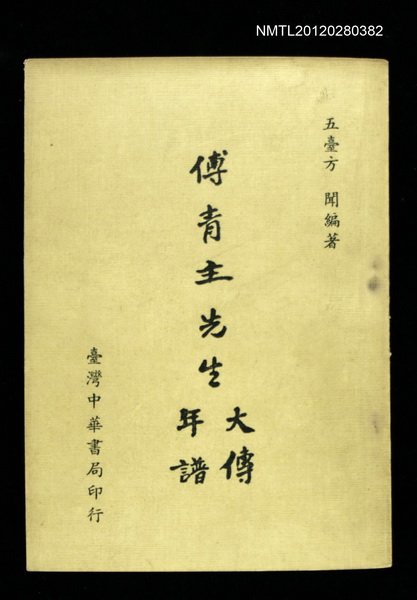 NMTL20120280382
五臺方 聞編著
傅青主先生
大傳
年譜
臺灣中華書局印行